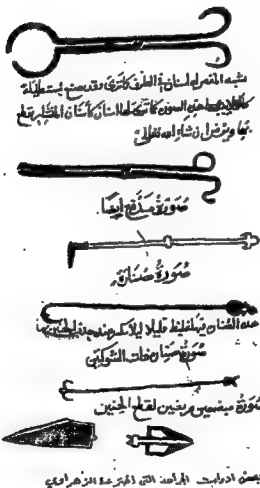 يشبه المقص له أسنان في الطرف كما ترى وقد يصنع مستطيلة
كالكلاليب على هذه الصورة كما ترى لها أسنان كأسنان المنشار يقطع
بها ويرض إن شاء الله تعالى
صورة مدفع أيضا
صورة صنارة
هذه الصنارة فيها غلظ قليلا ليلا تكسر عند جذب الجنين بها
صورة صنارة ذات الشوكتين
صورة مبضعين عريضين لقطع الجنين
بعض أدوات الجراحة التي اخترعها الزهراوي